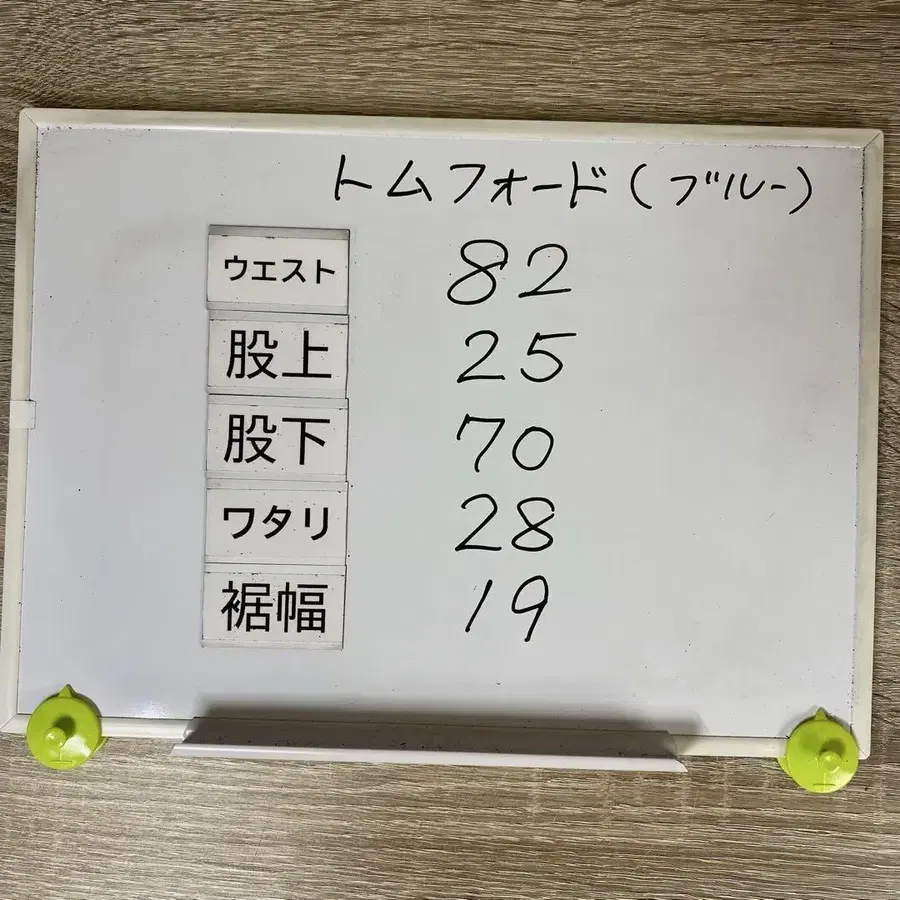 トムフォード(ブルー)
ウエスト 82
股上 25
股下 70
ワタリ 28
裾幅 19